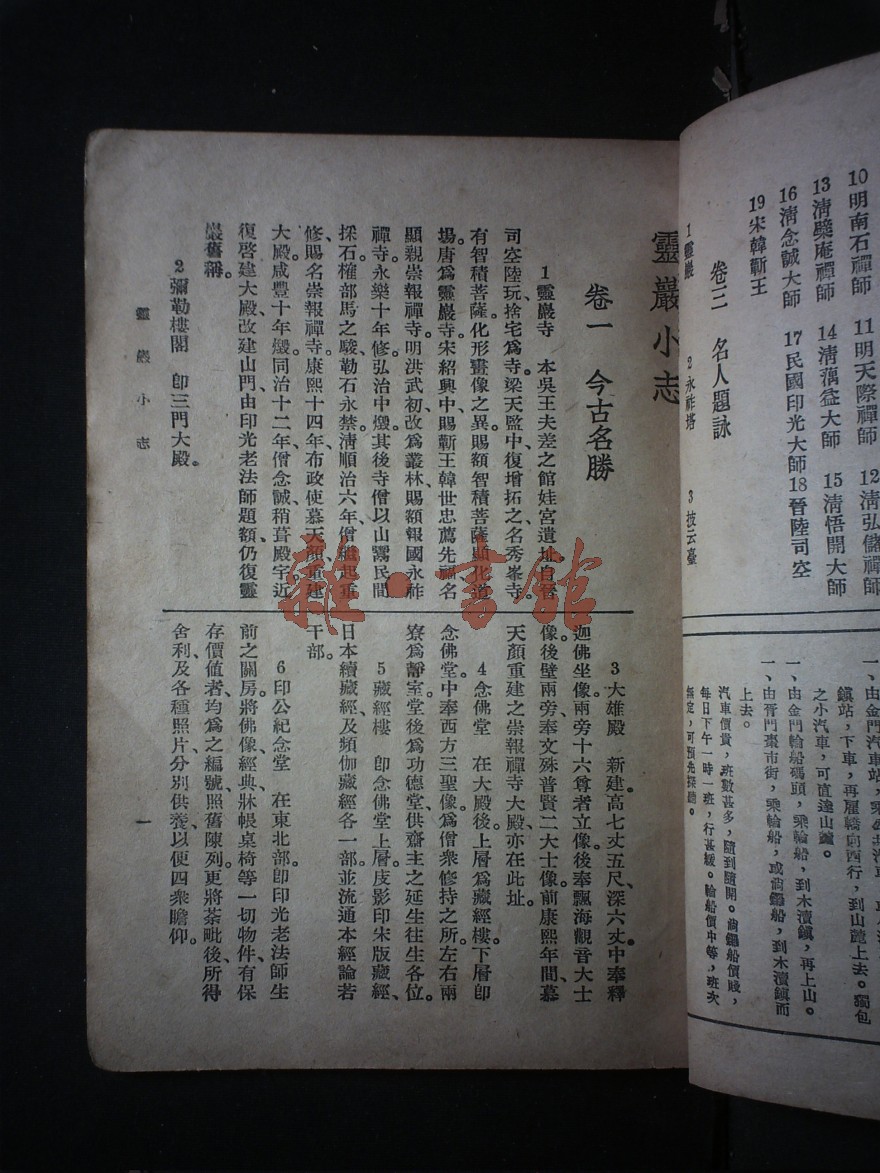 10明南石禪師　11明天際禪師　12清弘儲禪師
13清檗庵禪師　14清蕅益大師　15清悟開大師
16清念誠大師　17民國印光大師18晉陸司空
19宋韓蘄王
卷三　名人題詠
1靈巖　2永祚塔　3披云臺
之小汽車，可直達山麓。
鎮站，下車，再雇轎向西行，到山麓上去。獨包
一、由金門輪船碼頭，乘輪船，到木瀆鎮，再上山。
一、由胥門棗市街，乘輪船，或
船，到木瀆鎮而
上去。
汽車價貴，班數甚多，隨到隨開。
船價賤，
每日下午一時一班，行甚緩。輪船價中等，班次
無定，可預先探聽。
靈巖小志
卷一　今古名勝
1靈巖寺　本吳王夫差之館娃宮遺址。自晉
司空陸玩、捨宅爲寺。梁天監中、復增拓之、名秀峯寺。
有智積菩薩化形畫像之異。賜額智積菩薩顯化道
場。唐爲靈巖寺。宋紹興中、賜蘄王韓世忠薦先福、名
顯親崇報禪寺。明洪武初、改爲叢林、賜額報國永祚
禪寺。永樂十年修、弘治中燬。其後寺僧以山鬻民間
採石、榷部馬之駿、勒石永禁。清順治六年、僧繼起重
修、賜名崇報禪寺。康熙十四年、布政使慕天顏、重建
大殿。咸豐十年燬。同治十二年、僧念誠、稍葺殿宇。近
復啓建大殿、改建山門、由印光老法師題額、仍復靈
巖舊稱。
2彌勒樓閣　卽三門大殿。
3大雄殿　新建高七丈五尺、深六丈。中奉釋
迦佛坐像。兩旁十六尊者立像。後奉飄海觀音大士
像。後壁兩旁、奉文殊普賢二大士像。前康熙年間、慕
天顏重建之崇報禪寺大殿、亦在此址。
4念佛堂　在大殿後。上層爲藏經樓。下層卽
念佛堂。中奉西方三聖像、爲僧衆修持之所。左右兩
寮爲靜室。堂後爲功德堂、供齋主之延生往生各位。
5藏經樓　卽念佛堂上層。庋影印宋版藏經、
日本續藏經、及頻伽藏經各一部。並流通本經論若
干部。
6印公紀念堂　在東北部。卽印光老法師生
前之關房。將佛像經典、牀帳桌椅等一切物件、有保
存價值者、均爲之編號、照舊陳列。更將茶毗後、所得
舍利、及各種照片、分別供養、以便四衆瞻仰。
靈巖小志
一
雜·書館